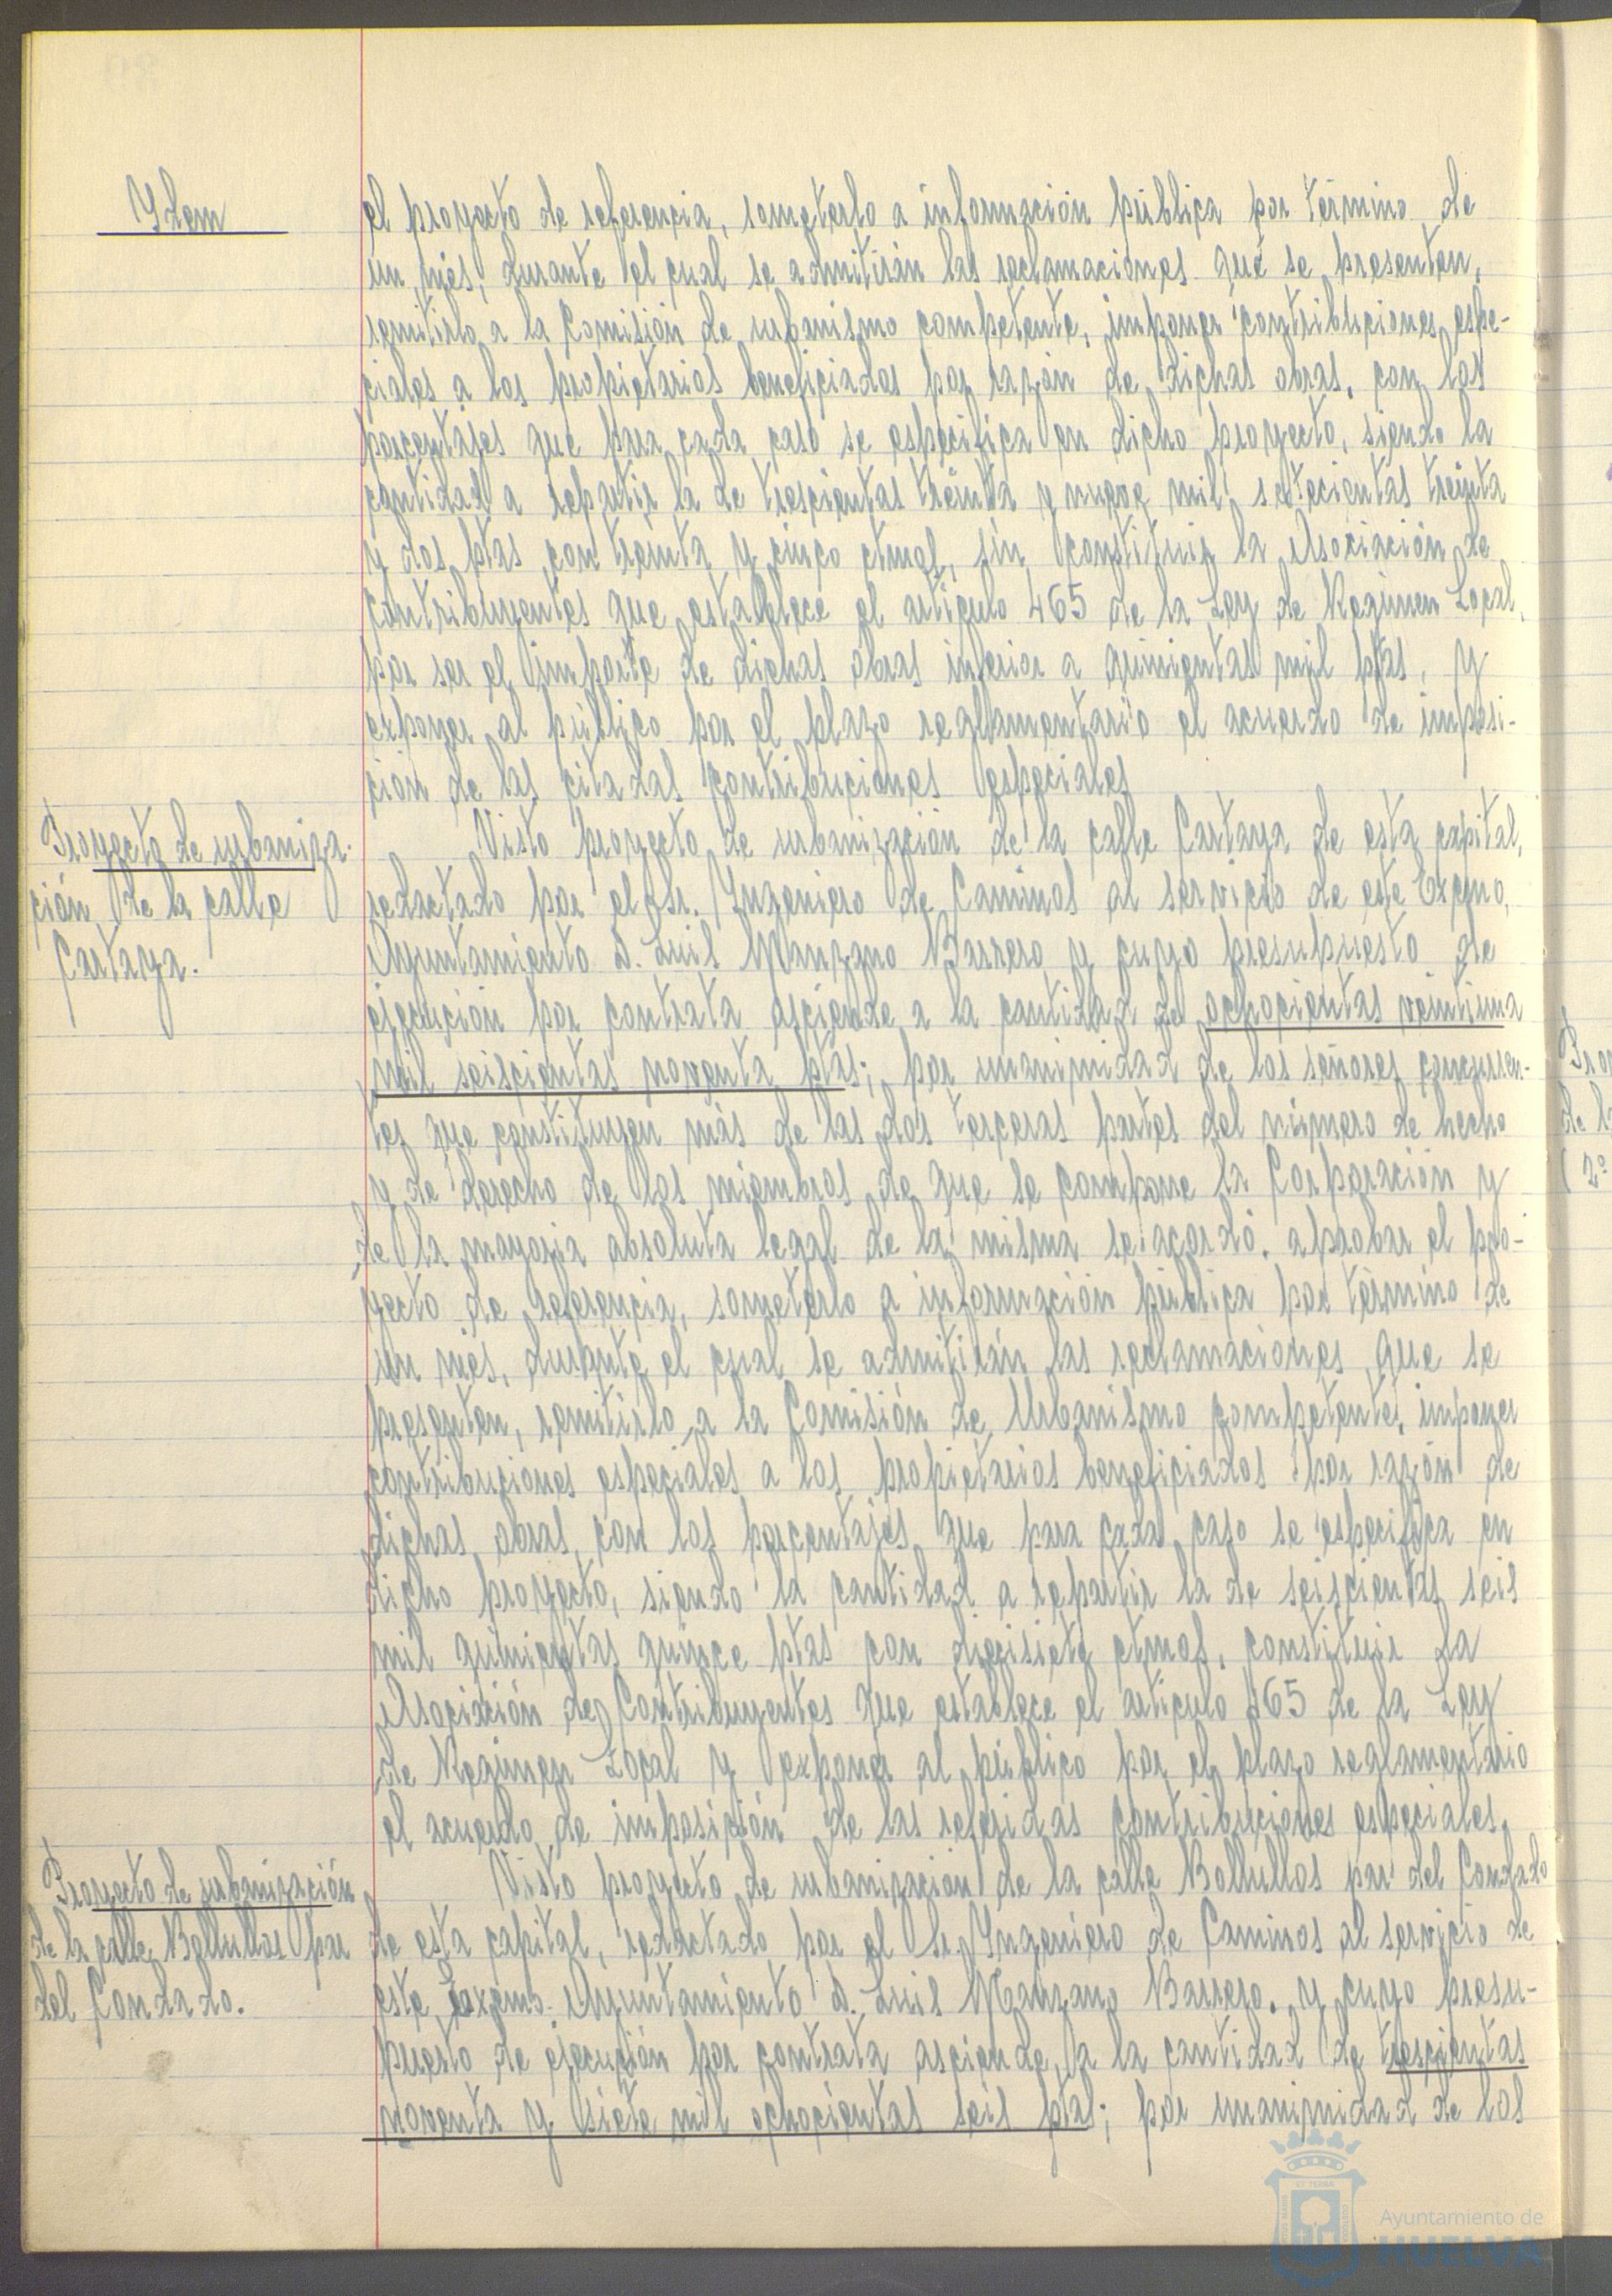 Ydem
el proyecto de referencia, someterlo a información pública por término de
un més, durante el cual se admitirán las reclamaciones que se presenten,
remitirlo a la Comisión de urbanismo competente, imponer contribuciones espe-
ciales a los propietarios beneficiados por razón de dichas obras, con los
porcentajes que para cada caso se especifica en dicho proyecto, siendo la
cantidad a repartir la de trescientas treinta y nueve mil setecientas treinta
y dos ptas con treinta y cinco ctmos, sin constituir la Asociación de
contribuyentes que establece el articulo 465 de la Ley de Regimen Local,
por ser el importe de dichas obras inferior a quinientas mil ptas, y
exponer al público por el plazo reglamentario el acuerdo de imposi-
ción de las citadas contribuciones especiales
Proyecto de urbaniza-
ción de la calle
Cartaya.
Visto proyecto de urbanización de la calle Cartaya de esta capital,
redactado por el Sr. Yngeniero de Caminos al servicio de este Excmo,
Ayuntamiento D. Luis Manzano Barrero y cuyo presupuesto de
ejecución por contrata asciende a la cantidad de ochocientas veintiuna
mil seiscientas noventa ptas; por unanimidad de los señores concurren-
tes que constituyen más de las dos terceras partes del número de hecho
y de derecho de los miembros de que se compone la Corporación y
de la mayoria absoluta legal de la misma se acordó, aprobar el pro-
yecto de referencia, someterlo a información pública por término de
un més, durante el cual se admitirán las reclamaciones que se
presenten, remitirlo a la Comisión de Urbanismo competente, imponer
contribuciones especiales a los propietarios beneficiados por razón de
dichas obras, con los porcentajes que para cada caso se especifica en
dicho proyecto, siendo la cantidad a repartir la de seiscientas seis
mil quinientas quince ptas con diecisiete ctmos, constituir la
Asociación de Contribuyentes que establece el articulo 465 de la Ley
de Regimen Local y exponer al público por el plazo reglamentario
el acuerdo de imposición de las referidas contribuciones especiales.
Proyecto de urbanización
de la calle Bollullos par
del Condado.
Visto proyecto de urbanización de la calle Bollullos par del Condado
de esta capital, redactado por el Sr. Yngeniero de Caminos al servicio de
este Excmo. Ayuntamiento D. Luis Manzano Barrero, y cuyo presu-
puesto de ejecución por contrata asciende, a la cantidad de trescientas
noventa y siete mil ochocientas seis ptas; por unanimidad de los
Ayuntamiento de
HUELVA